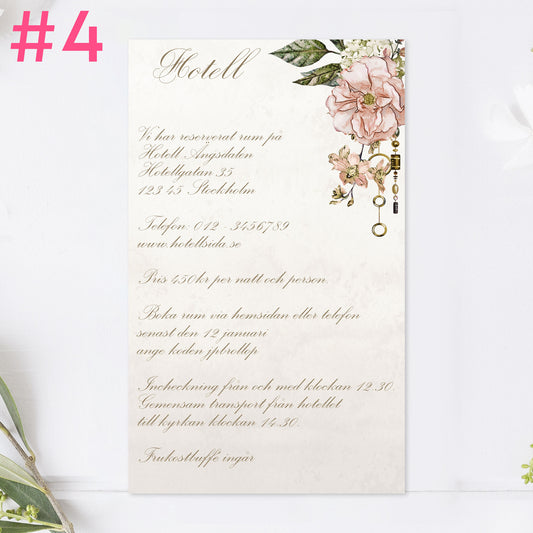 #4
Hotell
Vi har reserverat rum på
Hotell Ängsdalen
Hotellgatan 35
123 45 Stockholm
Telefon: 012 - 3456789
www.hotellsida.se
Pris 450kr per natt och person.
Boka rum via hemsidan eller telefon
senast den 12 januari
ange koden jpbrollop
Incheckning från och med klockan 12.30.
Gemensam transport från hotellet
till kyrkan klockan 14.30.
Frukostbuffé ingår